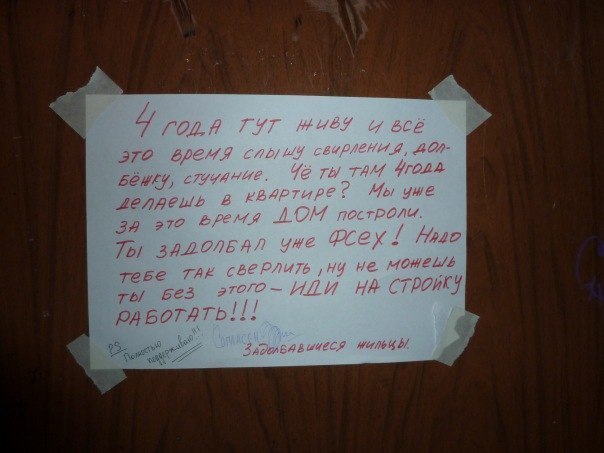 4 ГОДА ТУТ ЖИВУ И ВСЁ
ЭТО ВРЕМЯ СЛЫШУ СВИРЛЕНИЯ, ДОЛ-
БЁЖКУ, СТУЧАНИЕ. ЧЁ ТЫ ТАМ 4 ГОДА
ДЕЛАЕШЬ В КВАРТИРЕ? МЫ УЖЕ
ЗА ЭТО ВРЕМЯ ДОМ ПОСТРОЛИ.
ТЫ ЗАДОЛБАЛ УЖЕ ФСЕХ! НАДО
ТЕБЕ ТАК СВЕРЛИТЬ, НУ НЕ МОЖЕШЬ
ТЫ БЕЗ ЭТОГО – ИДИ НА СТРОЙКУ
РАБОТАТЬ!!!
PS. Полностью
поддерживаю!!!
Согласен
ЗАДОЛБАВШИЕСЯ ЖИЛЬЦЫ.